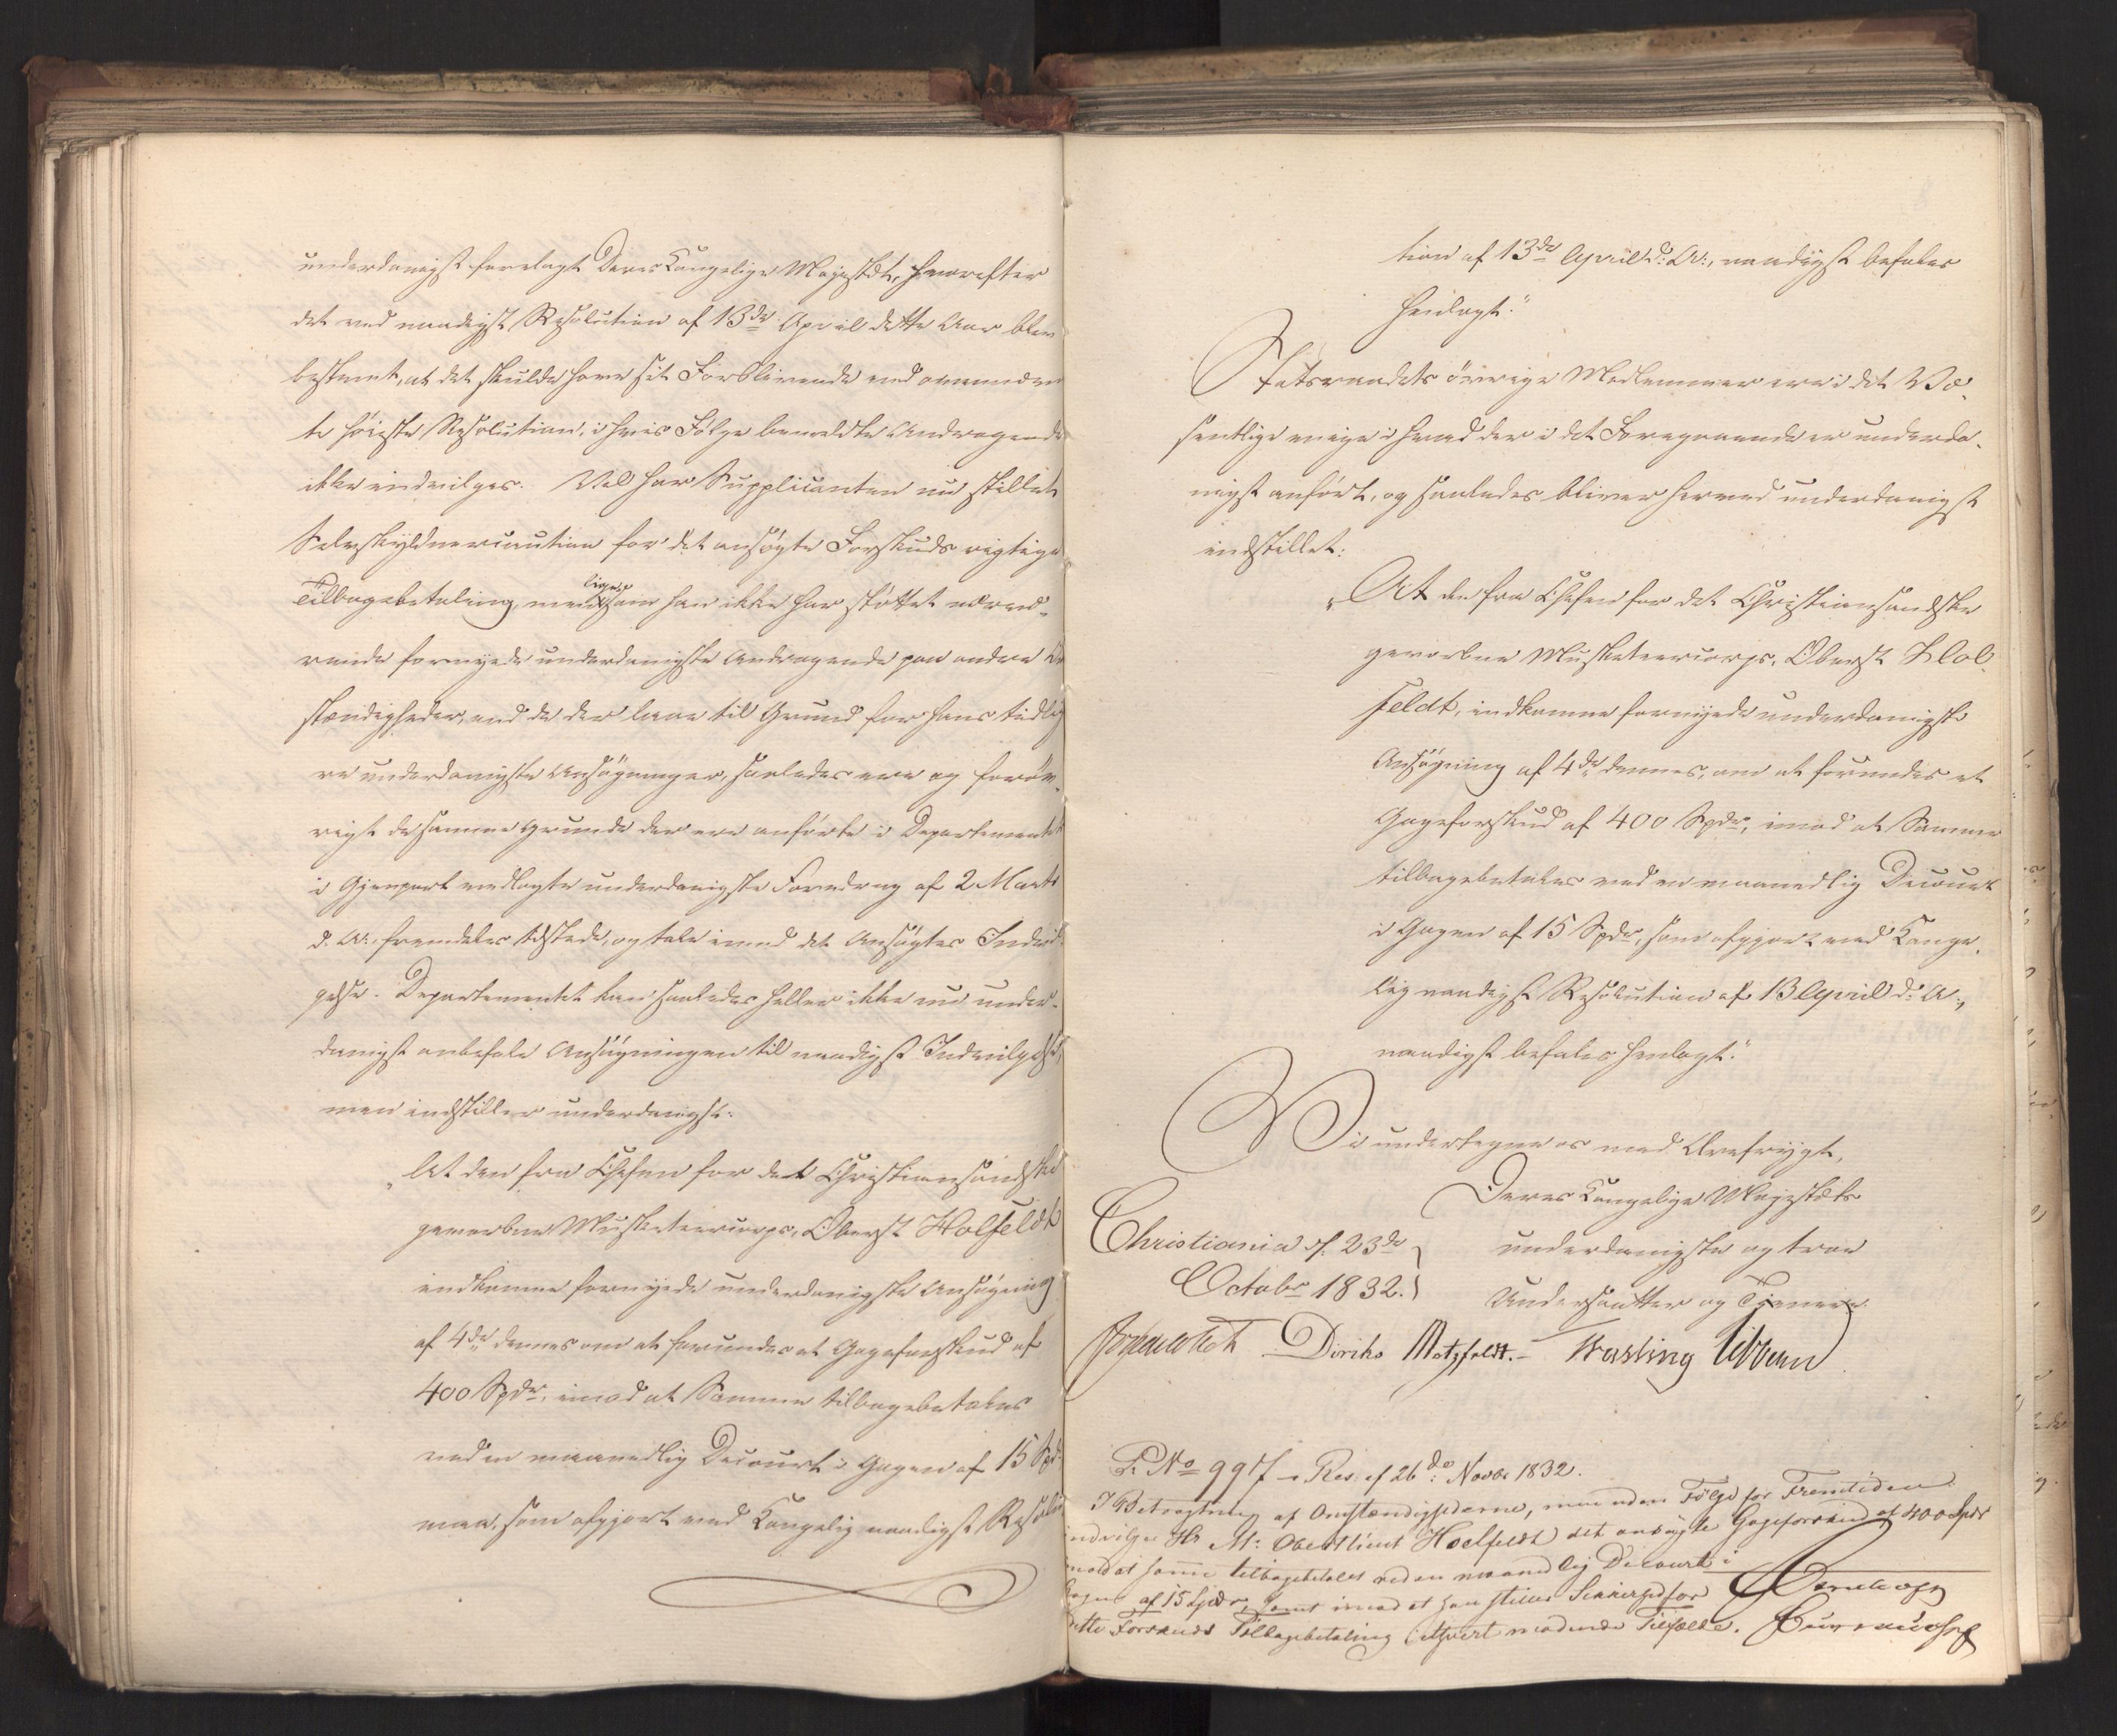 underdanigst forelagt Deres Kongelige Majestæt, hvorefter
det ved naadigst Resolution af 13de April dette Aar blev
bestemt, at det skulde have sit Forblivende ved ovenmeld
te høieste Resolution, i hvis Følge bemeldte Andragende
ikke indvilges. Vel har Supplicanten nu stillet
Selvskyldnercaution for det ansøgte Forskuds rigtige
Tilbagebetaling, men ligesom han ikke har støttet nærvæ-
rende fornyede underdanigste Andragende paa andre Om
stændigheder, end de der laae til Grund for hans tidlige
re underdanigste Ansøgninger, saaledes ere og forøv-
rigt de samme Grunde der ere anførte i Departementets
i Gjenpart vedlagte underdanigste Foredrag af 2 Marts
d. A. fremdeles tilstede, og tale imod det Ansøgtes Indvil-
gelse. Departementet kan saaledes heller ikke nu under-
danigst anbefale Ansøgningen til naadigst Indvilgelse,
men indstiller underdanigst:
„At den fra Chefen for det Christiansandske
gevorbne Musketeercorps, Oberst Holfeldt
indkomne fornyede underdanigste Ansøgning
af 4de dennes om at forundes et Gageforskud af
400 Spdr, imod at Samme tilbagebetales
ved en maanedlig Decourt i Gagen af 15 Spd
maa, som afgjort ved Kongelig naadigst Resolu
tion af 13de April d: A:, naadigst befales
henlagt."
Statsraadets øvrige Medlemmer ere i det Væ-
sentlige enige i hvad der i det Foregaaende er underda-
nigst anført, og saaledes bliver herved underdanigst
indstillet:
„At den fra Chefen for det Christiansandske
gevorbne Musketeercorps, Oberst Hol-
feldt, indkomne fornyede underdanigste
Ansøgning af 4de dennes, om at forundes et
Gageforskud af 400 Spdr, imod at Samme
tilbagebetales ved en maanedlig Decourt
i Gagen af 15 Spdr, som afgjort ved Konge-
lig naadigst Resolution af 13 April d: A:,
naadigst befales henlagt."
Vi undertegne os med Ærefrygt,
Deres Kongelige Majestæts
Christiania d. 23de underdanigste og troe
Octobr 1832. Undersaatter og Tjenere.
Diriks Motzfeldt. Vibe
No 997 Res: af 26de Novbr 1832.
I Betragtning af Omstændighederne, men uden Følge for Fremtiden
indvilges Hr Oberstlieut Holfeldt det ansøgte Gageforskud af 400 Spdr
imod at samme tilbagebetales ved en maanedlig Decourt i
Gagen af 15 Spdr, samt imod at han stiller Sikkerhed for
dette Forskuds Tilbagebetaling i ethvert mødende Tilfælde.